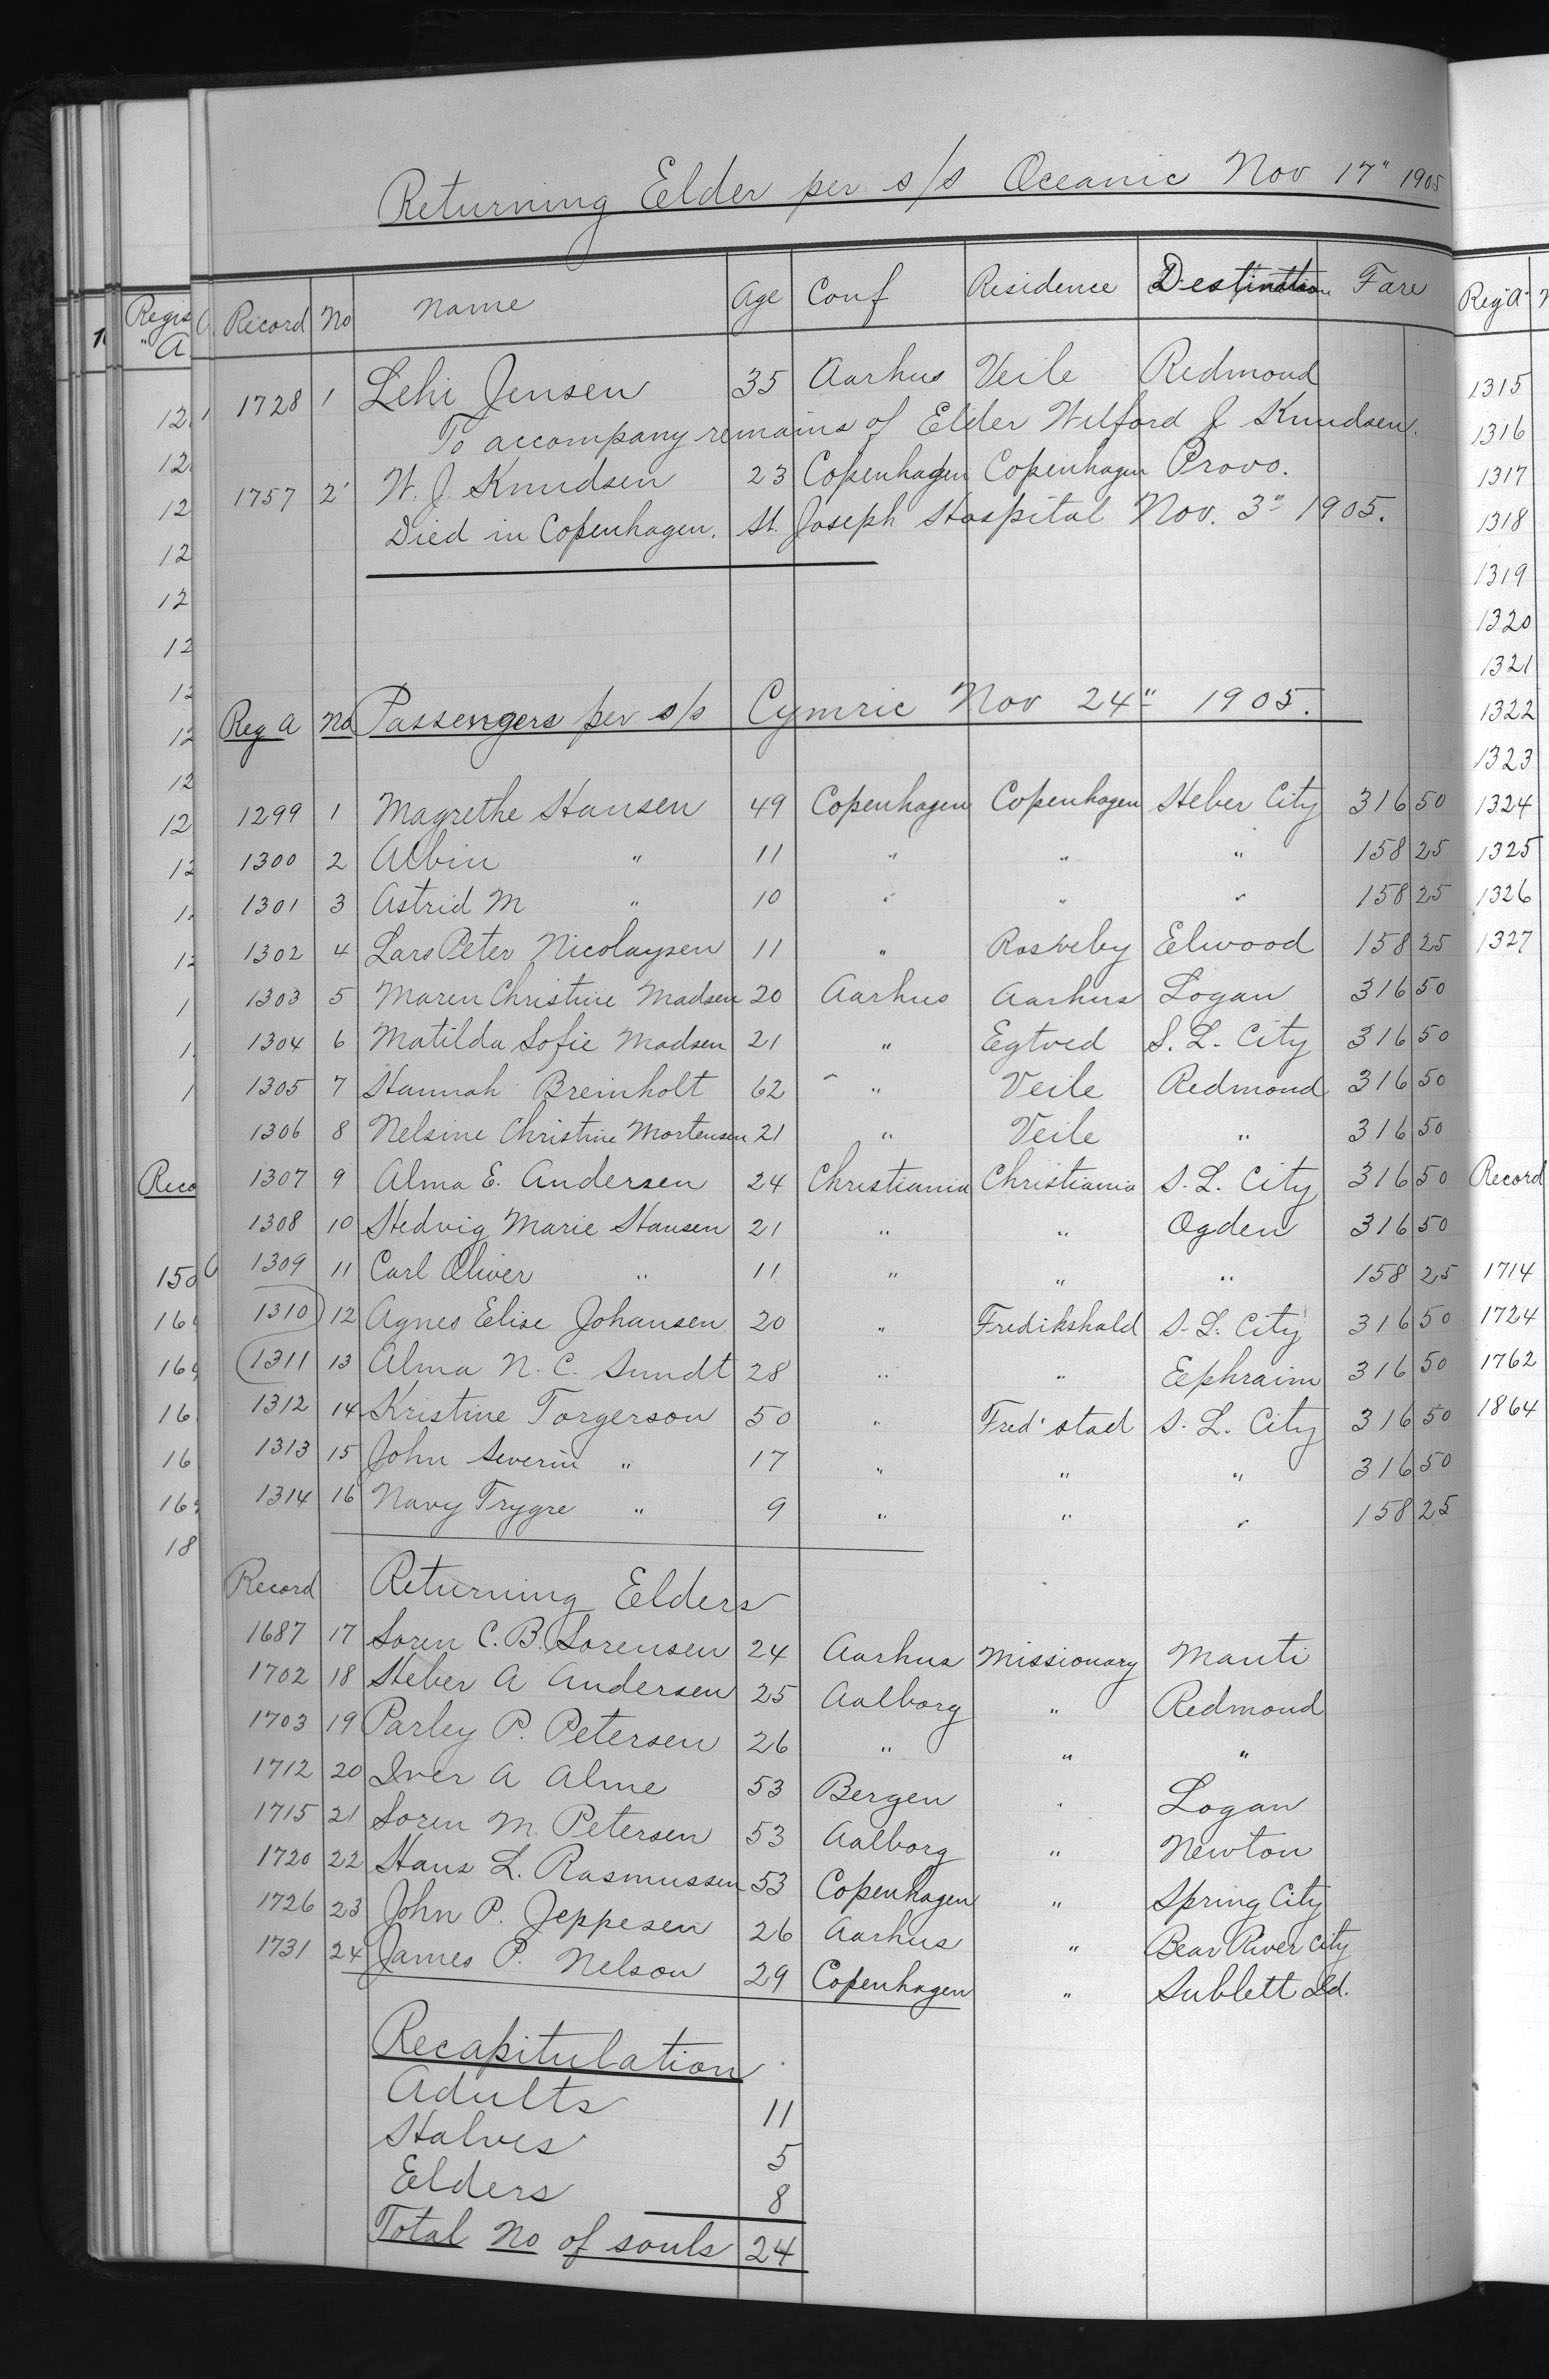 Returning Elder per s/s Oceanic Nov 17" 1905
Record No Name Age Conf Residence Destination Fare
1728 1 Lehi Jensen 35 Aarhus Veile Redmond
To accompany remains of Elder Wilford J Knudsen.
1757 2 W. J. Knudsen 23 Copenhagen Copenhagen Provo.
Died in Copenhagen. St. Joseph Hospital Nov. 3" 1905.
Reg A No Passengers per s/s Cymric Nov 24" 1905.
1299 1 Magrethe Hansen 49 Copenhagen Copenhagen Heber City 316 50
1300 2 Albin " 11 " " " 158 25
1301 3 Astrid M " 10 " " " 158 25
1302 4 Lars Peter Nicolaysen 11 " Elwood 158 25
1303 5 Maren Christine Madsen 20 Aarhus Aarhus Logan 316 50
1304 6 Matilda Sofie Madsen 21 " Egtved S. L. City 316 50
1305 7 Hannah Breinholt 62 " Veile Redmond 316 50
1306 8 Nelsine Christine Mortensen 21 " Veile " 316 50
1307 9 Alma E. Andersen 24 Christiania Christiania S. L. City 316 50
1308 10 Hedvig Marie Hansen 21 " " Ogden 316 50
1309 11 Carl Oliver " 11 " " " 158 25
1310 12 Agnes Elise Johansen 20 " Fredikshald S. L. City 316 50
1311 13 Alma N. C. Sundt 28 " " Ephraim 316 50
1312 14 Kristine Torgerson 50 " Fred'stad S. L. City 316 50
1313 15 John Severin " 17 " " " 316 50
1314 16 Navy Trygre " 9 " " " 158 25
Record Returning Elders
1687 17 Soren C. B. Sorensen 24 Aarhus Missionary Manti
1702 18 Heber A Andersen 25 Aalborg " Redmond
1703 19 Parley P. Petersen 26 " " "
1712 20 Iver A Alme 53 Bergen " Logan
1715 21 Soren M. Petersen 53 Aalborg " Newton
1720 22 Hans L. Rasmussen 53 Copenhagen " Spring City
1726 23 John P. Jeppesen 26 Aarhus " Bear River City
1731 24 James P. Nelson 29 Copenhagen " Sublett Id.
Recapitulation
Adults 11
Halves 5
Elders 8
Total No of souls 24
Regis
"A
12
12
12
12
12
12
12
12
12
12
12
Reco
16
16
18
Reg A
1315
1316
1317
1318
1319
1320
1321
1322
1323
1324
1325
1326
1327
Record
1714
1724
1762
1864